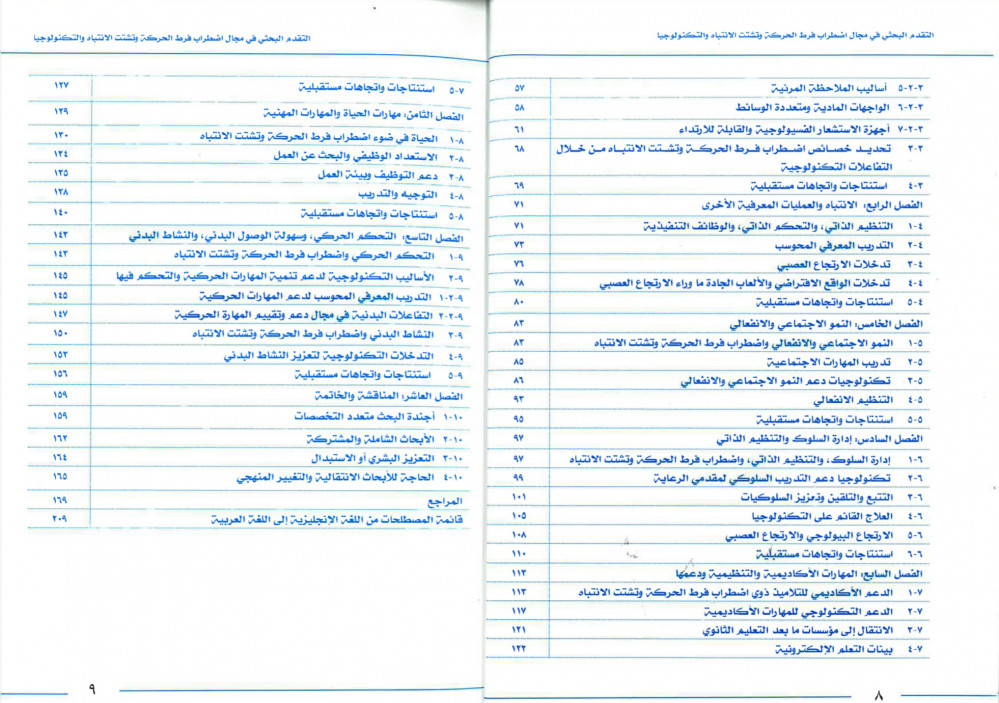 التقدم البحثي في مجال اضطراب فرط الحركة وتشتت الانتباه والتكنولوجيا
٣-٢-٥ أساليب الملاحظة المرئية ٥٧
٣-٢-٦ الواجهات المادية ومتعددة الوسائط ٥٨
٣-٢-٧ أجهزة الاستشعار الفسيولوجية والقابلة للارتداء ٦١
٣-٣ تحديد خصائص اضطراب فرط الحركة وتشتت الانتباه من خلال ٦٨
التفاعلات التكنولوجية
٣-٤ استنتاجات واتجاهات مستقبلية ٦٩
الفصل الرابع: الانتباه والعمليات المعرفية الأخرى ٧١
٤-١ التنظيم الذاتي، والتحكم الذاتي، والوظائف التنفيذية ٧١
٤-٢ التدريب المعرفي المحوسب ٧٣
٤-٣ تدخلات الارتجاع العصبي ٧٦
٤-٤ تدخلات الواقع الافتراضي والألعاب الجادة ما وراء الارتجاع العصبي ٧٨
٤-٥ استنتاجات واتجاهات مستقبلية ٨٠
الفصل الخامس: النمو الاجتماعي والانفعالي ٨٣
٥-١ النمو الاجتماعي والانفعالي واضطراب فرط الحركة وتشتت الانتباه ٨٣
٥-٢ تدريب المهارات الاجتماعية ٨٥
٥-٣ تكنولوجيات دعم النمو الاجتماعي والانفعالي ٨٦
٥-٤ التنظيم الانفعالي ٩٣
٥-٥ استنتاجات واتجاهات مستقبلية ٩٥
الفصل السادس: إدارة السلوك والتنظيم الذاتي ٩٧
٦-١ إدارة السلوك، والتنظيم الذاتي، واضطراب فرط الحركة وتشتت الانتباه ٩٧
٦-٢ تكنولوجيا دعم التدريب السلوكي لمقدمي الرعاية ٩٩
٦-٣ التتبع والتلقين وتعزيز السلوكيات ١٠١
٦-٤ العلاج القائم على التكنولوجيا ١٠٥
٦-٥ الارتجاع البيولوجي والارتجاع العصبي ١٠٨
٦-٦ استنتاجات واتجاهات مستقبلية ١١٠
الفصل السابع: المهارات الأكاديمية والتنظيمية ودعمها ١١٣
٧-١ الدعم الأكاديمي للتلاميذ ذوي اضطراب فرط الحركة وتشتت الانتباه ١١٣
٧-٢ الدعم التكنولوجي للمهارات الأكاديمية ١١٧
٧-٣ الانتقال إلى مؤسسات ما بعد التعليم الثانوي ١٢١
٧-٤ بيئات التعلم الإلكترونية ١٢٢
٨
التقدم البحثي في مجال اضطراب فرط الحركة وتشتت الانتباه والتكنولوجيا
٧-٥ استنتاجات واتجاهات مستقبلية ١٢٧
الفصل الثامن: مهارات الحياة والمهارات المهنية ١٢٩
٨-١ الحياة في ضوء اضطراب فرط الحركة وتشتت الانتباه ١٣٠
٨-٢ الاستعداد الوظيفي والبحث عن العمل ١٣٤
٨-٣ دعم التوظيف وبيئة العمل ١٣٥
٨-٤ التوجيه والتدريب ١٣٨
٨-٥ استنتاجات واتجاهات مستقبلية ١٤٠
الفصل التاسع: التحكم الحركي، وسهولة الوصول البدني، والنشاط البدني ١٤٣
٩-١ التحكم الحركي واضطراب فرط الحركة وتشتت الانتباه ١٤٣
٩-٢ الأساليب التكنولوجية لدعم تنمية المهارات الحركية والتحكم فيها ١٤٥
٩-٢-١ التدريب المعرفي المحوسب لدعم المهارات الحركية ١٤٥
٩-٢-٢ التفاعلات البدنية في مجال دعم وتقييم المهارة الحركية ١٤٧
٩-٣ النشاط البدني واضطراب فرط الحركة وتشتت الانتباه ١٥٠
٩-٤ التدخلات التكنولوجية لتعزيز النشاط البدني ١٥٣
٩-٥ استنتاجات واتجاهات مستقبلية ١٥٦
الفصل العاشر: المناقشة والخاتمة ١٥٩
١٠-١ أجندة البحث متعدد التخصصات ١٥٩
١٠-٢ الأبحاث الشاملة والمشتركة ١٦٢
١٠-٣ التعزيز البشري أو الاستبدال ١٦٤
١٠-٤ الحاجة للأبحاث الانتقالية والتغيير المنهجي ١٦٥
المراجع ١٦٩
قائمة المصطلحات من اللغة الإنجليزية إلى اللغة العربية ٢٠٩
٩